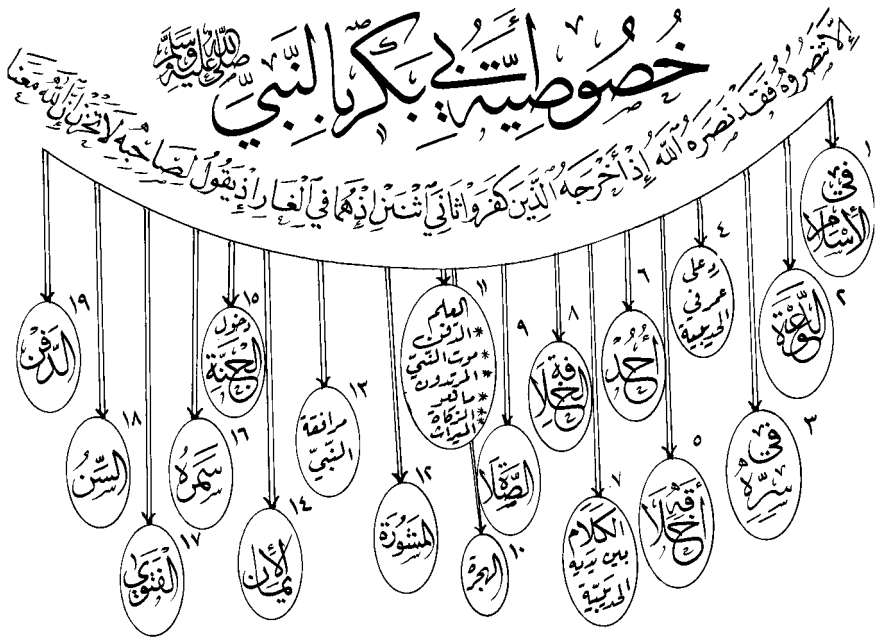 خُصُوصِيَّة أَبِي بَكْرٍ بِالنَّبِيِّ
صلى الله عليه وسلم
إِلَّا تَنصُرُوهُ فَقَدْ نَصَرَهُ اللَّهُ إِذْ أَخْرَجَهُ الَّذِينَ كَفَرُوا ثَانِيَ اثْنَيْنِ إِذْ هُمَا فِي الْغَارِ إِذْ يَقُولُ لِصَاحِبِهِ لَا تَحْزَنْ إِنَّ اللَّهَ مَعَنَا
١
في
الأسلام
٢
الدعوة
٣
في
سره
٤
رد على
عمر في
الحديبية
٥
أخلاقه
٦
أحد
٧
الكلام
بين يديه
الحديبية
٨
الخلافة
٩
الصلاة
١٠
الهجرة
١١
العلم
* الدفن
* موت النبي
* المرتدون
* الزكاة
* الميراث
١٢
المشورة
١٣
مرافقة
النبي
١٤
الإيمان
١٥
دخول
الجنة
١٦
سمره
١٧
الفتوى
١٨
السن
١٩
الدفن